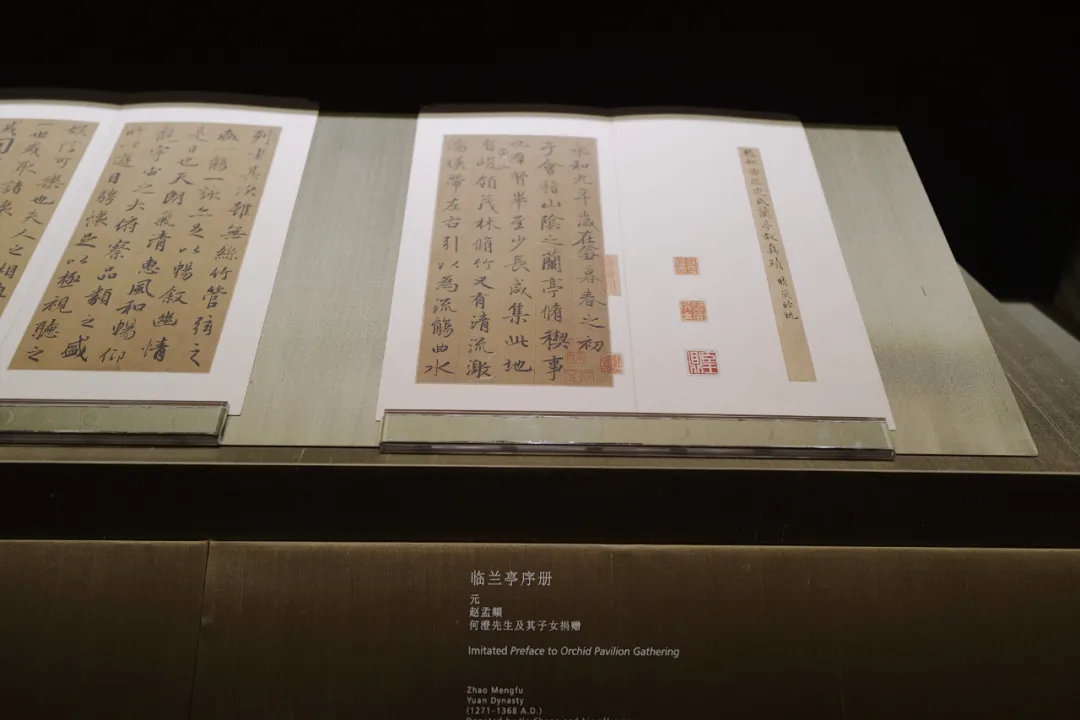 蘭亭叙真蹟
永和九年歲在癸丑暮春之初
于會稽山陰之蘭亭脩禊事
也羣賢畢至少長咸集此地
有崇山峻領茂林脩竹又有清流激
湍暎帶左右引以為流觴曲水
列坐其次雖無絲竹管弦之
盛一觴一詠亦足以暢叙幽情
是日也天朗氣清惠風和暢仰
觀宇宙之大俯察品類之盛
所以遊目騁懷足以極視聽之
娛信可樂也夫人之相與
一世或取諸
或因
临兰亭序册
元
赵孟頫
何澄先生及其子女捐赠
Imitated Preface to Orchid Pavilion Gathering
Zhao Mengfu
Yuan Dynasty
(1271-1368 A.D.)